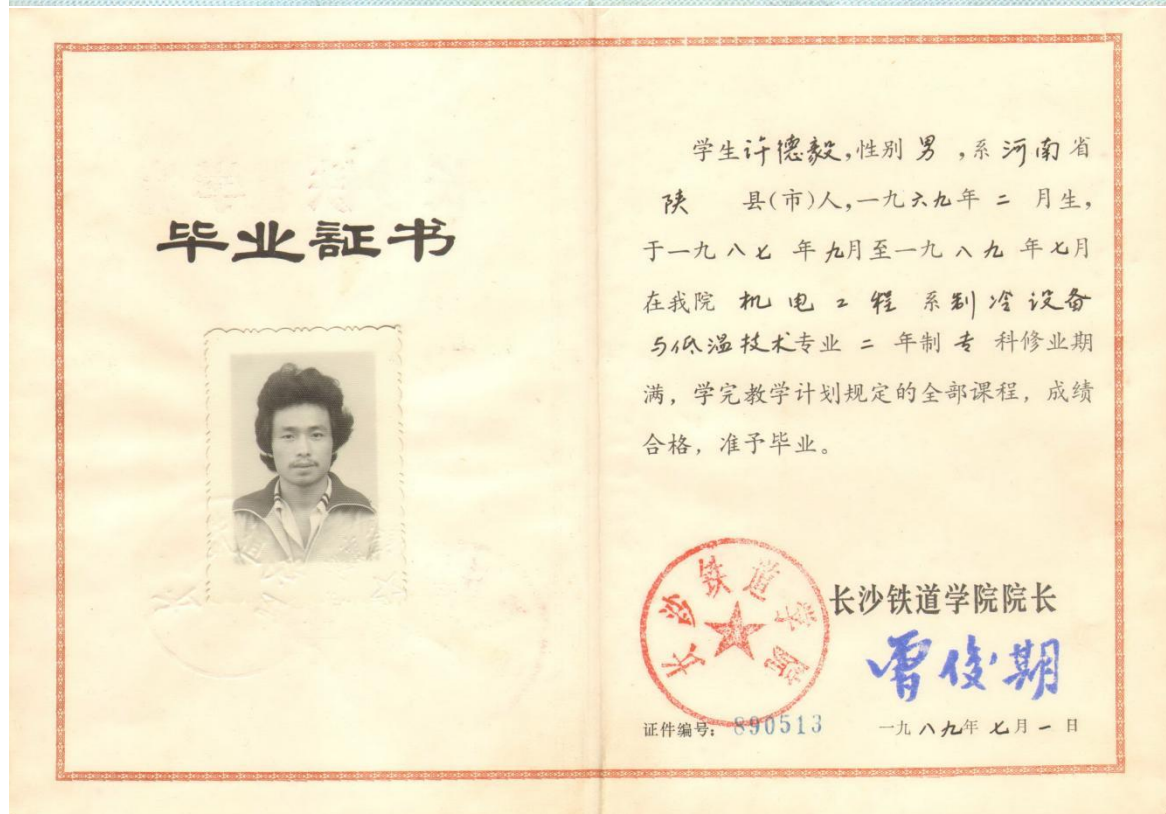 毕业証书
学生许德毅,性别 男 ,系 河南 省
陕 县(市)人,一九六九年 二 月生,
于一九八七 年 九月至一九八九 年 七月
在我院 机电工程 系 制冷设备
与低温技术专业 二 年制 专 科修业期
满，学完教学计划规定的全部课程，成绩
合格，准予毕业。
长沙铁道学院
长沙铁道学院院长
曹俊期
证件编号: 890513
一九八九年 七月一日